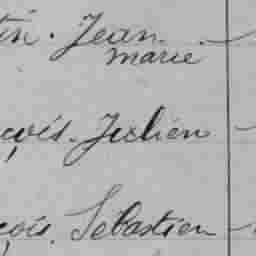 tin. Jean
marie
çois. Julien
çois. Sébastien